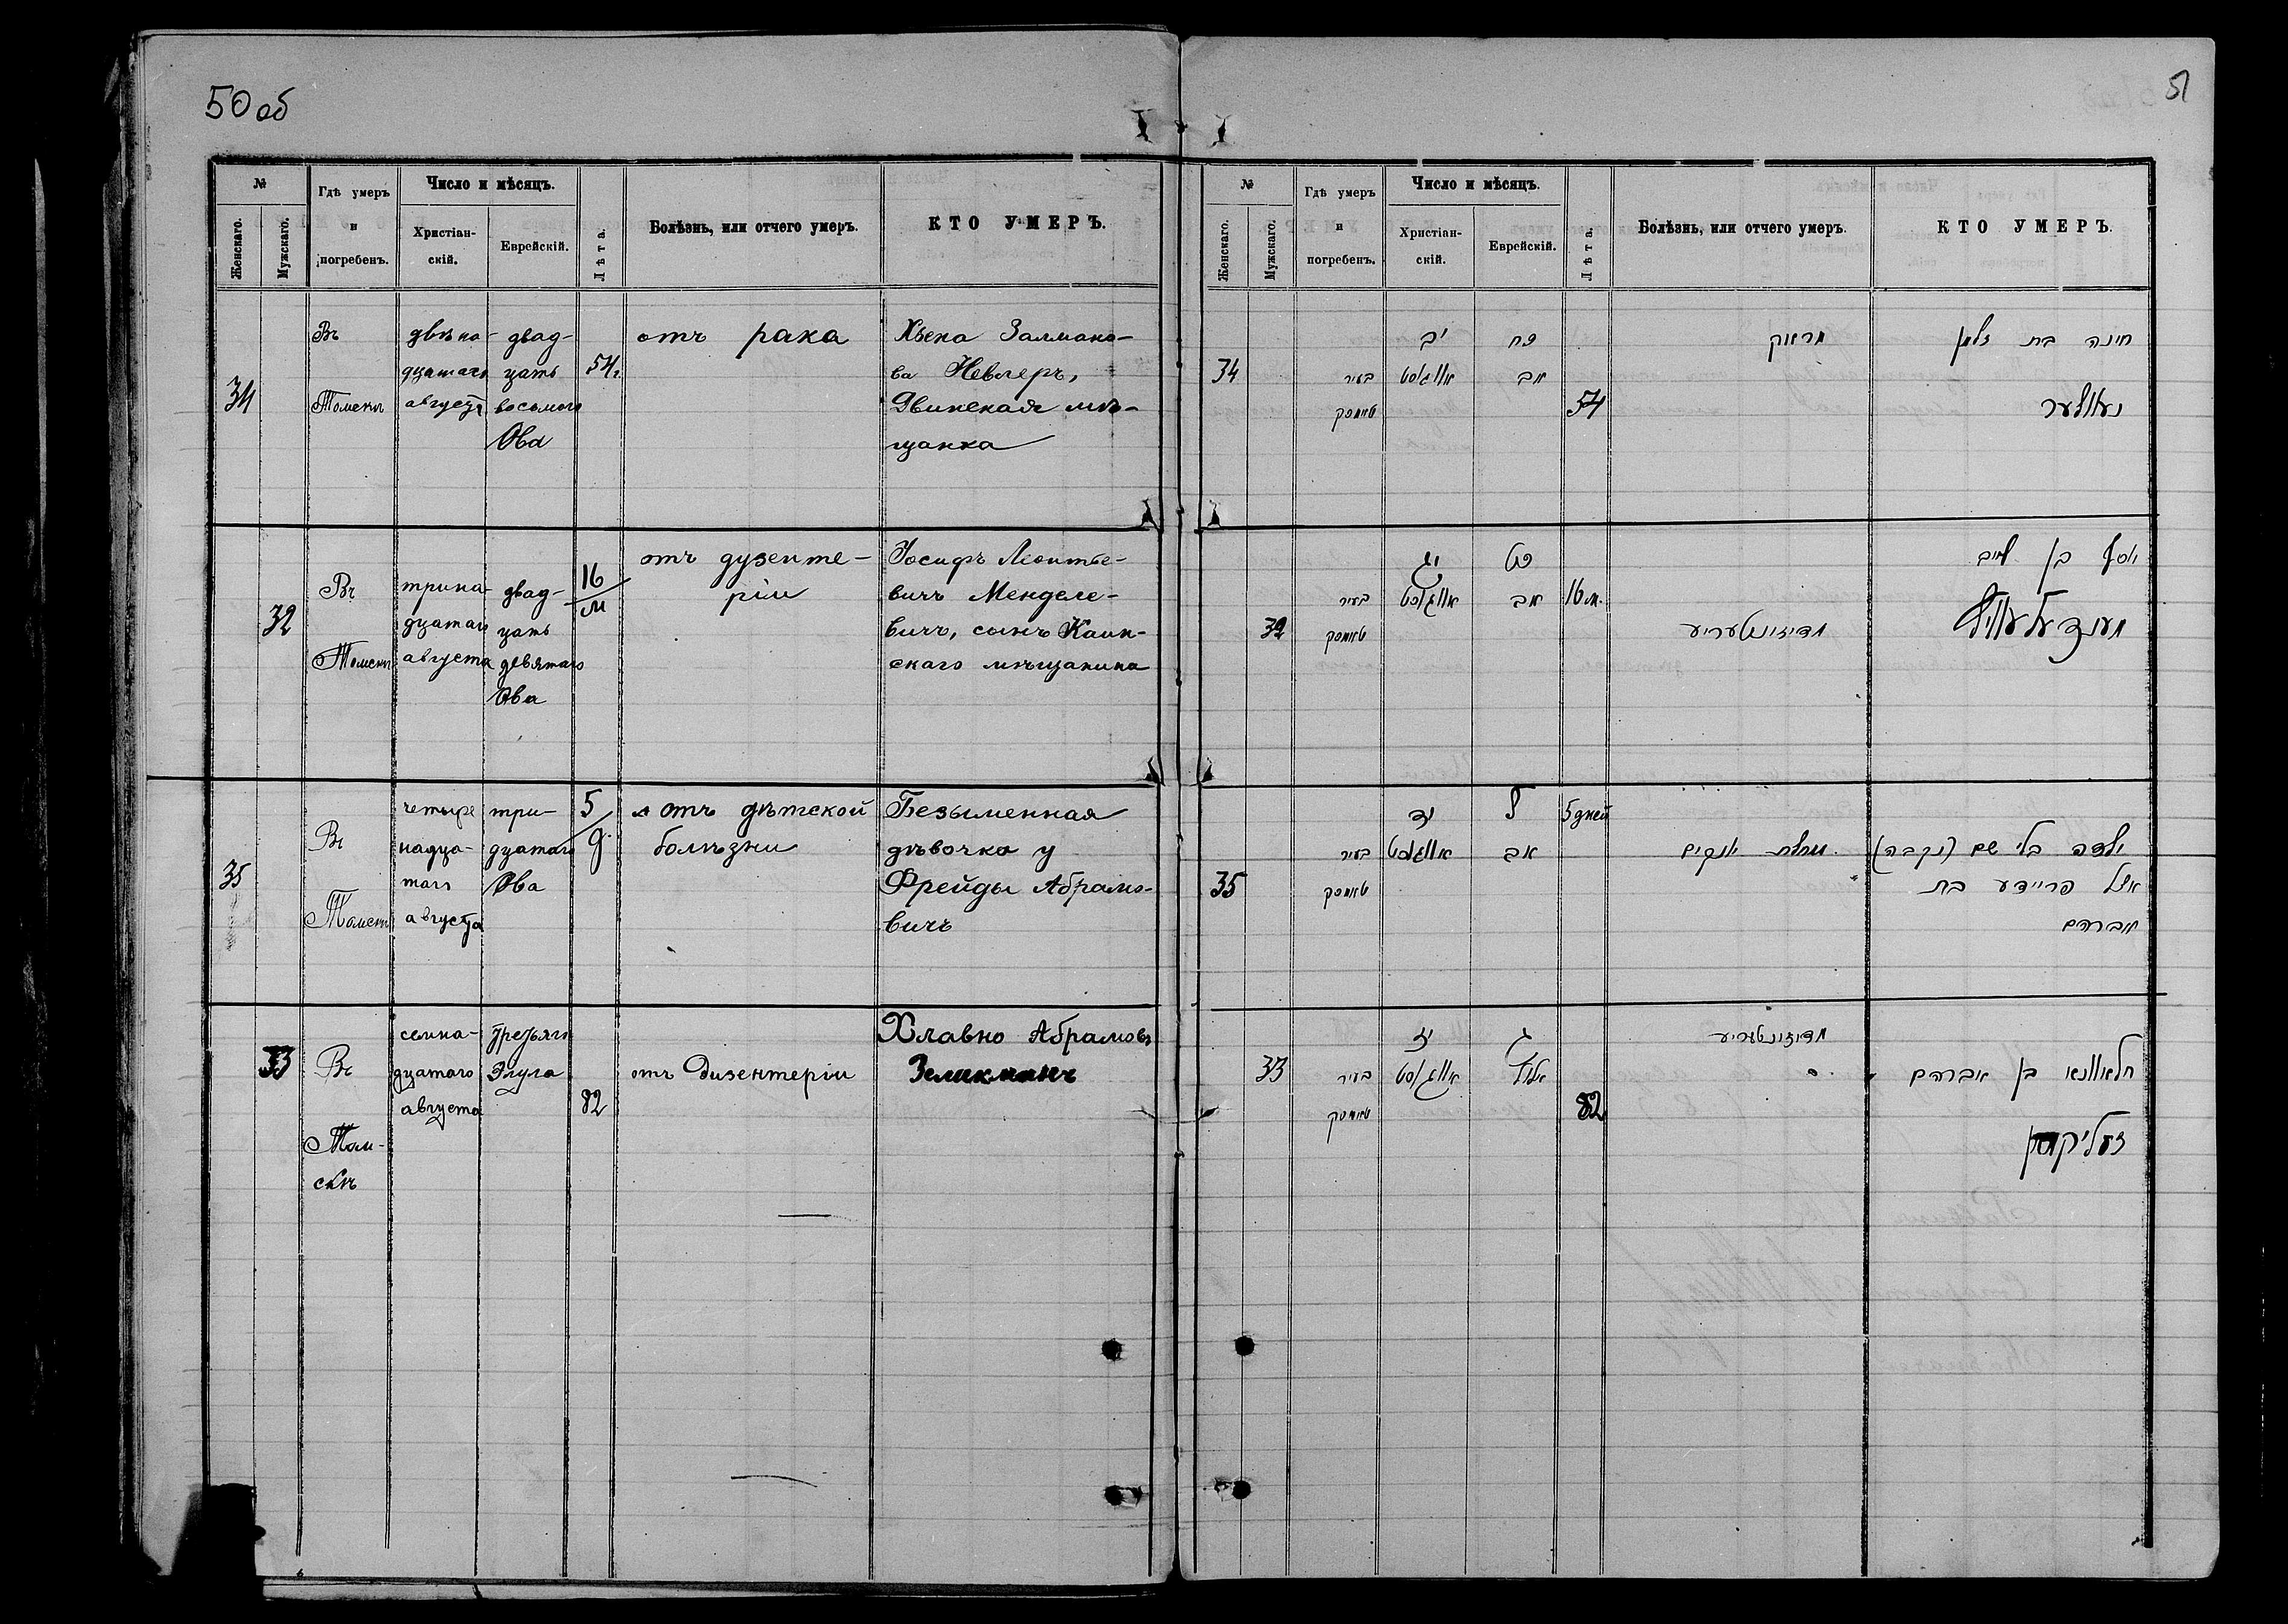 50 об
№
Женскаго.
Мужскаго.
Гдѣ умеръ
и
погребенъ.
Число и мѣсяцъ.
Христіан-
скій.
Еврейскій.
Лѣта.
Болѣзнь, или отчего умеръ.
КТО УМЕРЪ.
34
Въ
Томскѣ
двѣна-
дцатаго
августа
двад-
цать
восьмого
Ова
54 г.
отъ рака
Хьена Залмано-
ва Невлеръ,
Двинская мѣ-
щанка
32
Въ
Томскѣ
трина-
дцатаго
августа
двад-
цать
девятаго
Ова
16
м
отъ дузенте-
ріи
Іосифъ Леонтье-
вичъ Менделе-
вичъ, сынъ Каин-
скаго мѣщанина
35
Въ
Томскѣ
четыре
надца-
таго
августа
три-
дцатаго
Ова
5
д.
отъ дѣтской
болѣзни
Безыменная
дѣвочка у
Фрейды Абрамо-
вичъ
33
Въ
Том-
скѣ
семна-
дцатаго
августа
третьяго
Элула
82
отъ Дизентеріи
Хлавно Абрамовъ
Зеликманъ
51
№
Женскаго.
Мужскаго.
Гдѣ умеръ
и
погребенъ.
Число и мѣсяцъ.
Христіан-
скій.
Еврейскій.
Лѣта.
Болѣзнь, или отчего умеръ.
КТО УМЕРЪ.
34
בעיר
טאמסק
יב
אווגוסט
כח
אב
54
מראק
חינה בת זלמן
נעוולער
32
בעיר
טאמסק
יג
אווגוסט
כט
אב
16 м.
מדיזינטעריע
יוסף בן לייב
מענדעלעוויץ
35
בעיר
טאמסק
יד
אווגוסט
ל
אב
5 дней
מחלת ילדים
ילדה בלי שם (נקבה)
אצל פריידע בת
אברהם
33
בעיר
טאמסק
יז
אווגוסט
ג
אלול
82
מדיזינטעריע
חלאוונא בן אברהם
זעליקמאן